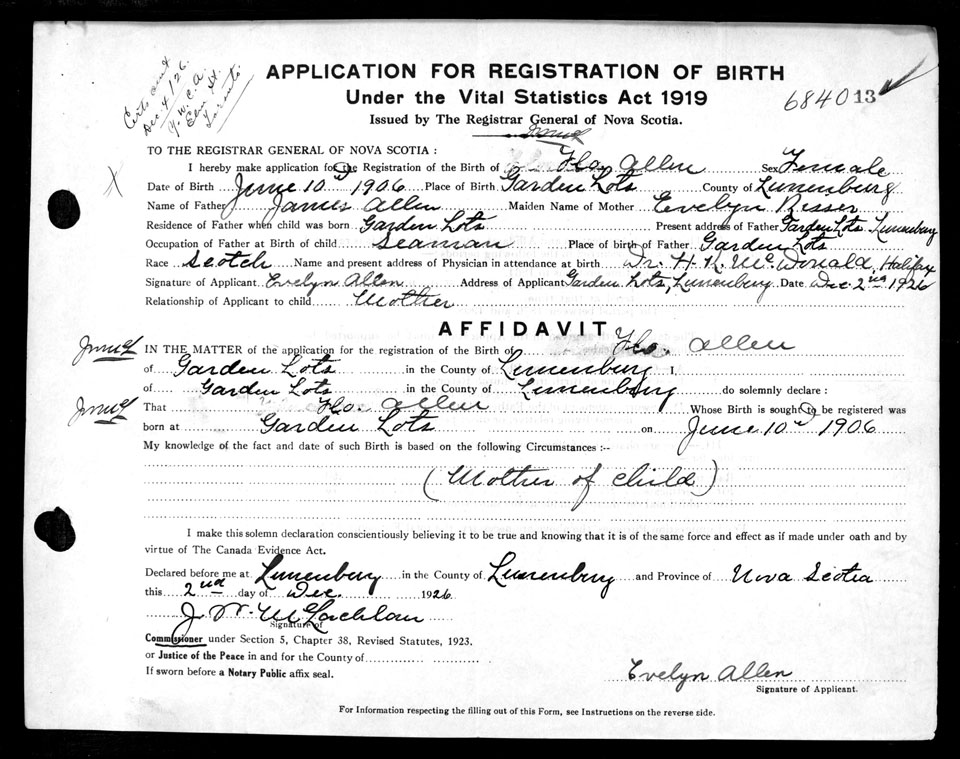 Certs sent
Dec. 4/26.
Y.W.C.A.
Elm St.
Toronto.
APPLICATION FOR REGISTRATION OF BIRTH
Under the Vital Statistics Act 1919
Issued by The Registrar General of Nova Scotia.
684013
TO THE REGISTRAR GENERAL OF NOVA SCOTIA :
I hereby make application for the Registration of the Birth of Flo. Allen Sex Female
Date of Birth June 10th 1906 Place of Birth Garden Lots County of Lunenburg
Name of Father James Allen Maiden Name of Mother Evelyn Risser
Residence of Father when child was born Garden Lots Present address of Father Garden Lots Lunenburg
Occupation of Father at Birth of child Seaman Place of birth of Father Garden Lots
Race Scotch Name and present address of Physician in attendance at birth Dr. H. K. McDonald, Halifax
Signature of Applicant Evelyn Allen Address of Applicant Garden Lots, Lunenburg Date Dec. 2nd 1926
Relationship of Applicant to child Mother
AFFIDAVIT
IN THE MATTER of the application for the registration of the Birth of Flo. Allen
of Garden Lots in the County of Lunenburg I,
of Garden Lots in the County of Lunenburg do solemnly declare :
That Flo. Allen Whose Birth is sought to be registered was
born at Garden Lots on June 10th 1906
My knowledge of the fact and date of such Birth is based on the following Circumstances :--
(Mother of child)
I make this solemn declaration conscientiously believing it to be true and knowing that it is of the same force and effect as if made under oath and by
virtue of The Canada Evidence Act.
Declared before me at Lunenburg in the County of Lunenburg and Province of Nova Scotia
this 2nd day of Dec. 1926
J W McLachlan
Signature of
Commissioner under Section 5, Chapter 38, Revised Statutes, 1923.
or Justice of the Peace in and for the County of
If sworn before a Notary Public affix seal.
Evelyn Allen
Signature of Applicant.
For Information respecting the filling out of this Form, see Instructions on the reverse side.